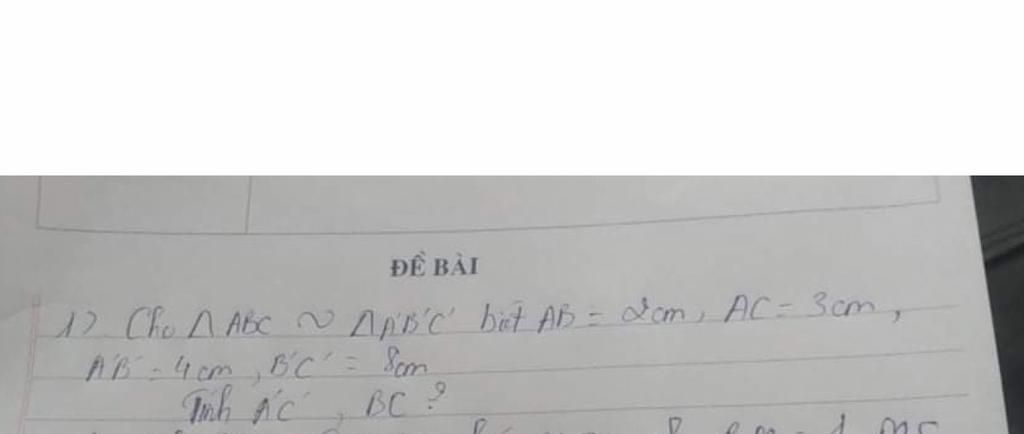 ĐỀ BÀI
1) Cho Δ ABC ∽ ΔA'B'C' biết AB = 2cm, AC = 3cm,
A'B' = 4cm, B'C' = 8cm
Tính A'C', BC ?